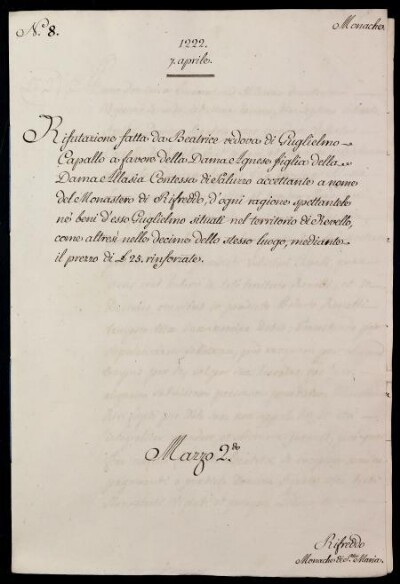 N.º 8.
Monache.
1222.
7. aprile.
Rifutazione fatta da Beatrice vedova di Guglielmo
Capallo a favore della Dama Agnese figlia della
Dama Allasia Contessa di Saluzzo accettante a nome
del Monastero di Rifreddo, d'ogni ragione spettantele
ne' beni d'esso Guglielmo situati nel territorio di Revello,
come altresì nelle decime dello stesso luogo, mediante
il prezzo di £ 25. rinforzate.
Mazzo 2.do
Rifreddo
Monache di S.ta Maria.